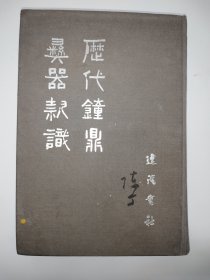 歷代鐘鼎
彝器款識
遼瀋書社